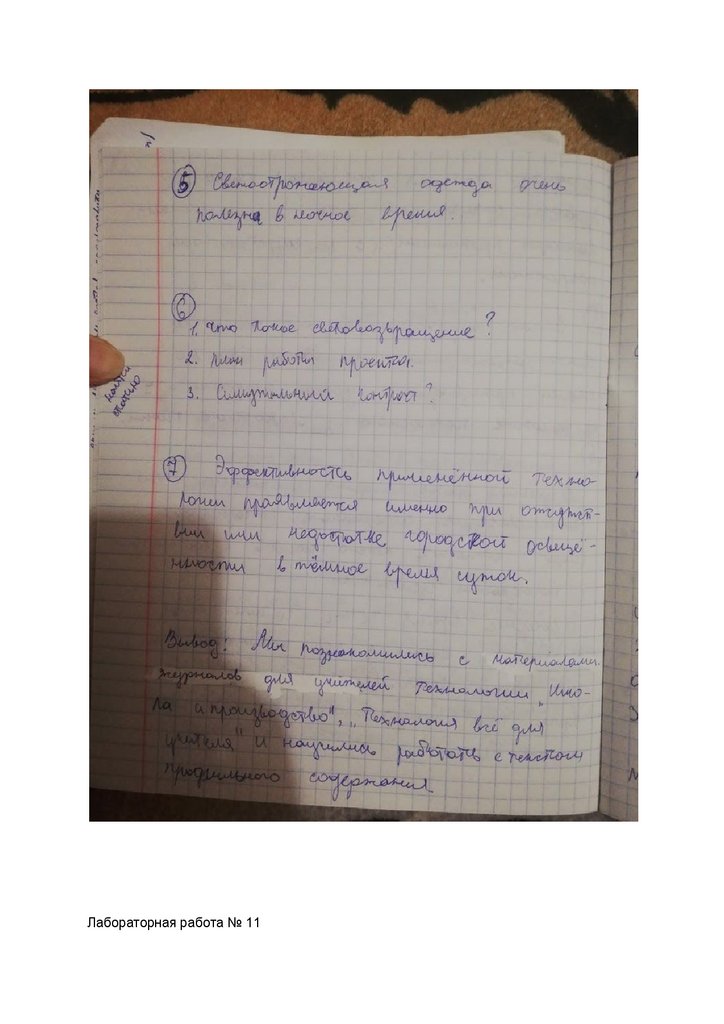 5 Светоотражающая одежда очень
полезна в ночное время.
6
1. Что такое световозвращение?
2. План работы проекта.
3. контраст?
7 Эффективность применённой техно-
логии проявляется именно при отсутств-
вии или недостатке городской освещё-
нности в тёмное время суток.
Вывод: Мы познакомились с материалами
журналов для учителей технологии "Шко-
ла и производство", "Технология всё для
учителя" и научились работать с текстом
профильного содержания
Лабораторная работа № 11